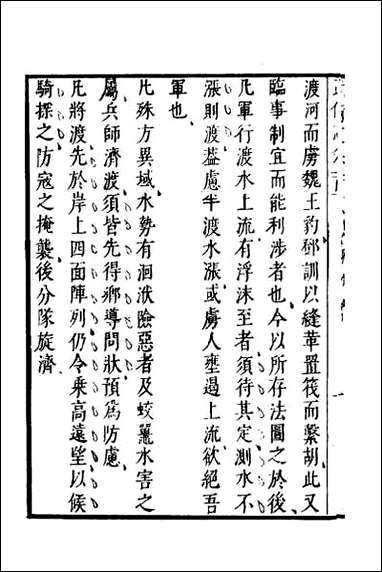 渡河而虜魏王豹鄧訓以縫革置筏而繫胡此又
臨事制宜而能利涉者也今以所存法圖之於後
凡軍行渡水上流有浮沫至者須待其定測水不
漲則渡葢慮半渡水漲或虜人壅遏上流欲絕吾
軍也
凡殊方異域水勢有洄洑險惡者及蛟鼉水害之
屬兵師濟渡須皆先得鄉導問狀預爲防慮
凡將渡先於岸上四面陣列仍令乘高遠望以候
騎探之防寇之掩襲後分隊旋濟